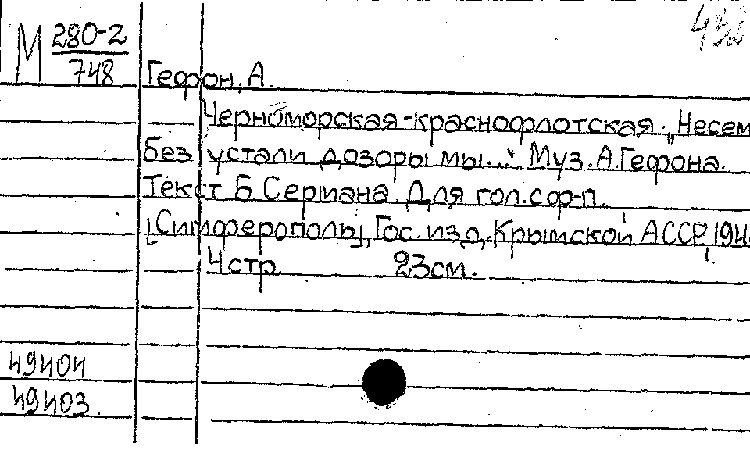 М 280-2
748
Гефон, А.
Черноморская-краснофлотская. "Несем
без устали дозоры мы..." Муз. А. Гефона.
Текст Б. Сермана. Для гол. с ф-п.
[Симферополь], Гос. изд. Крымской АССР, 194
4 стр. 23см.
49404
49403.